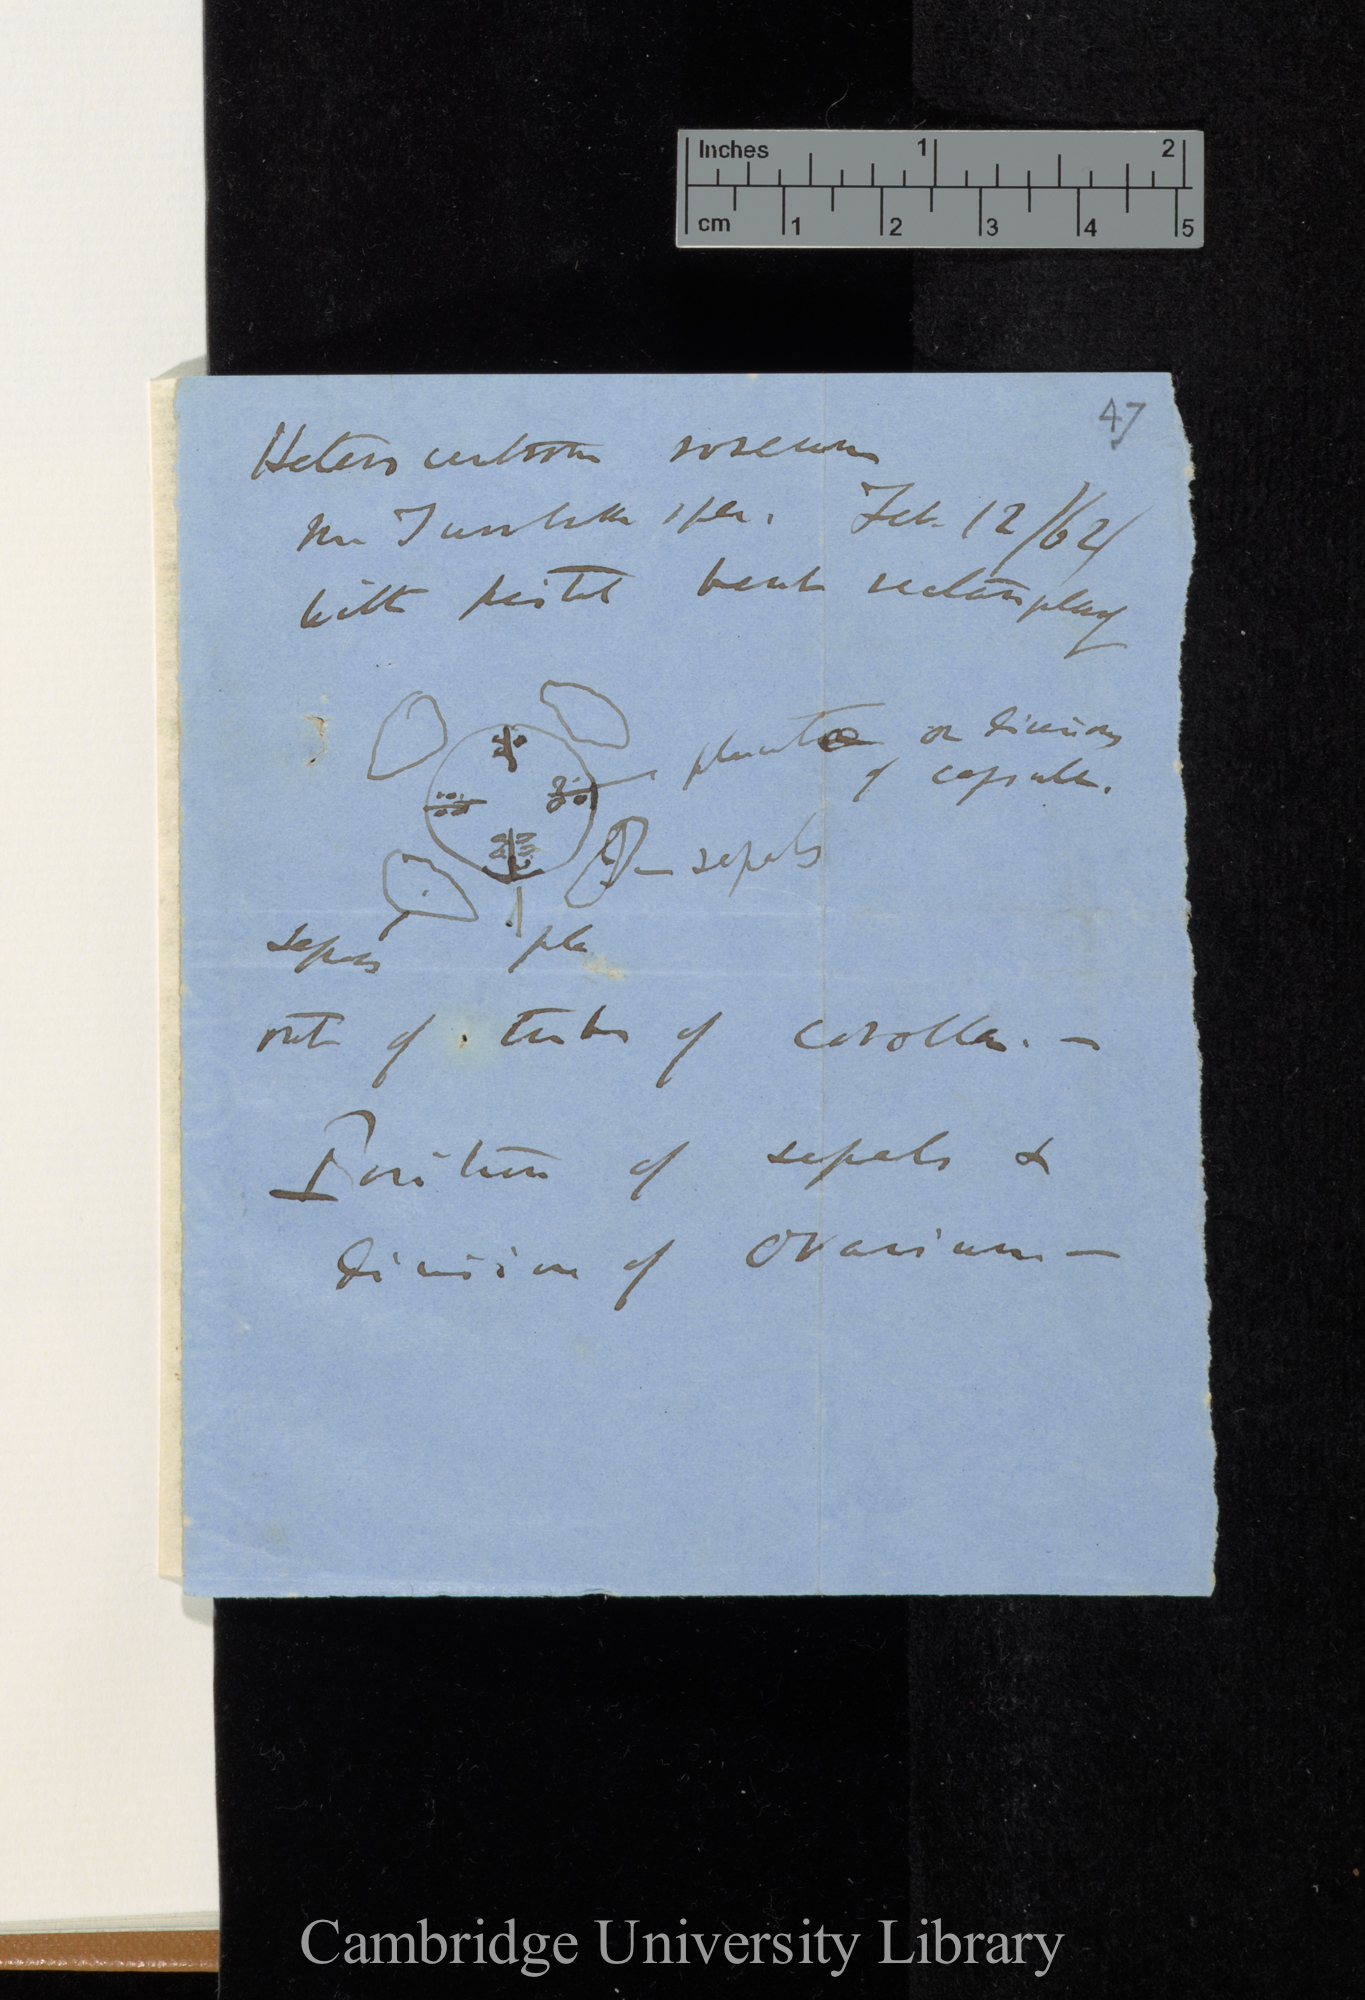 Inches 1 2
cm 1 2 3 4 5
47
Heterocentrum roseum
Mr Turnbull's spec. Feb. 12/62/
with pistil bent rectangularly
placentæ or divisions
of capsule.
sepals
sepals pla
out of tube of corolla. —
Position of sepals &
division of ovarium —
Cambridge University Library